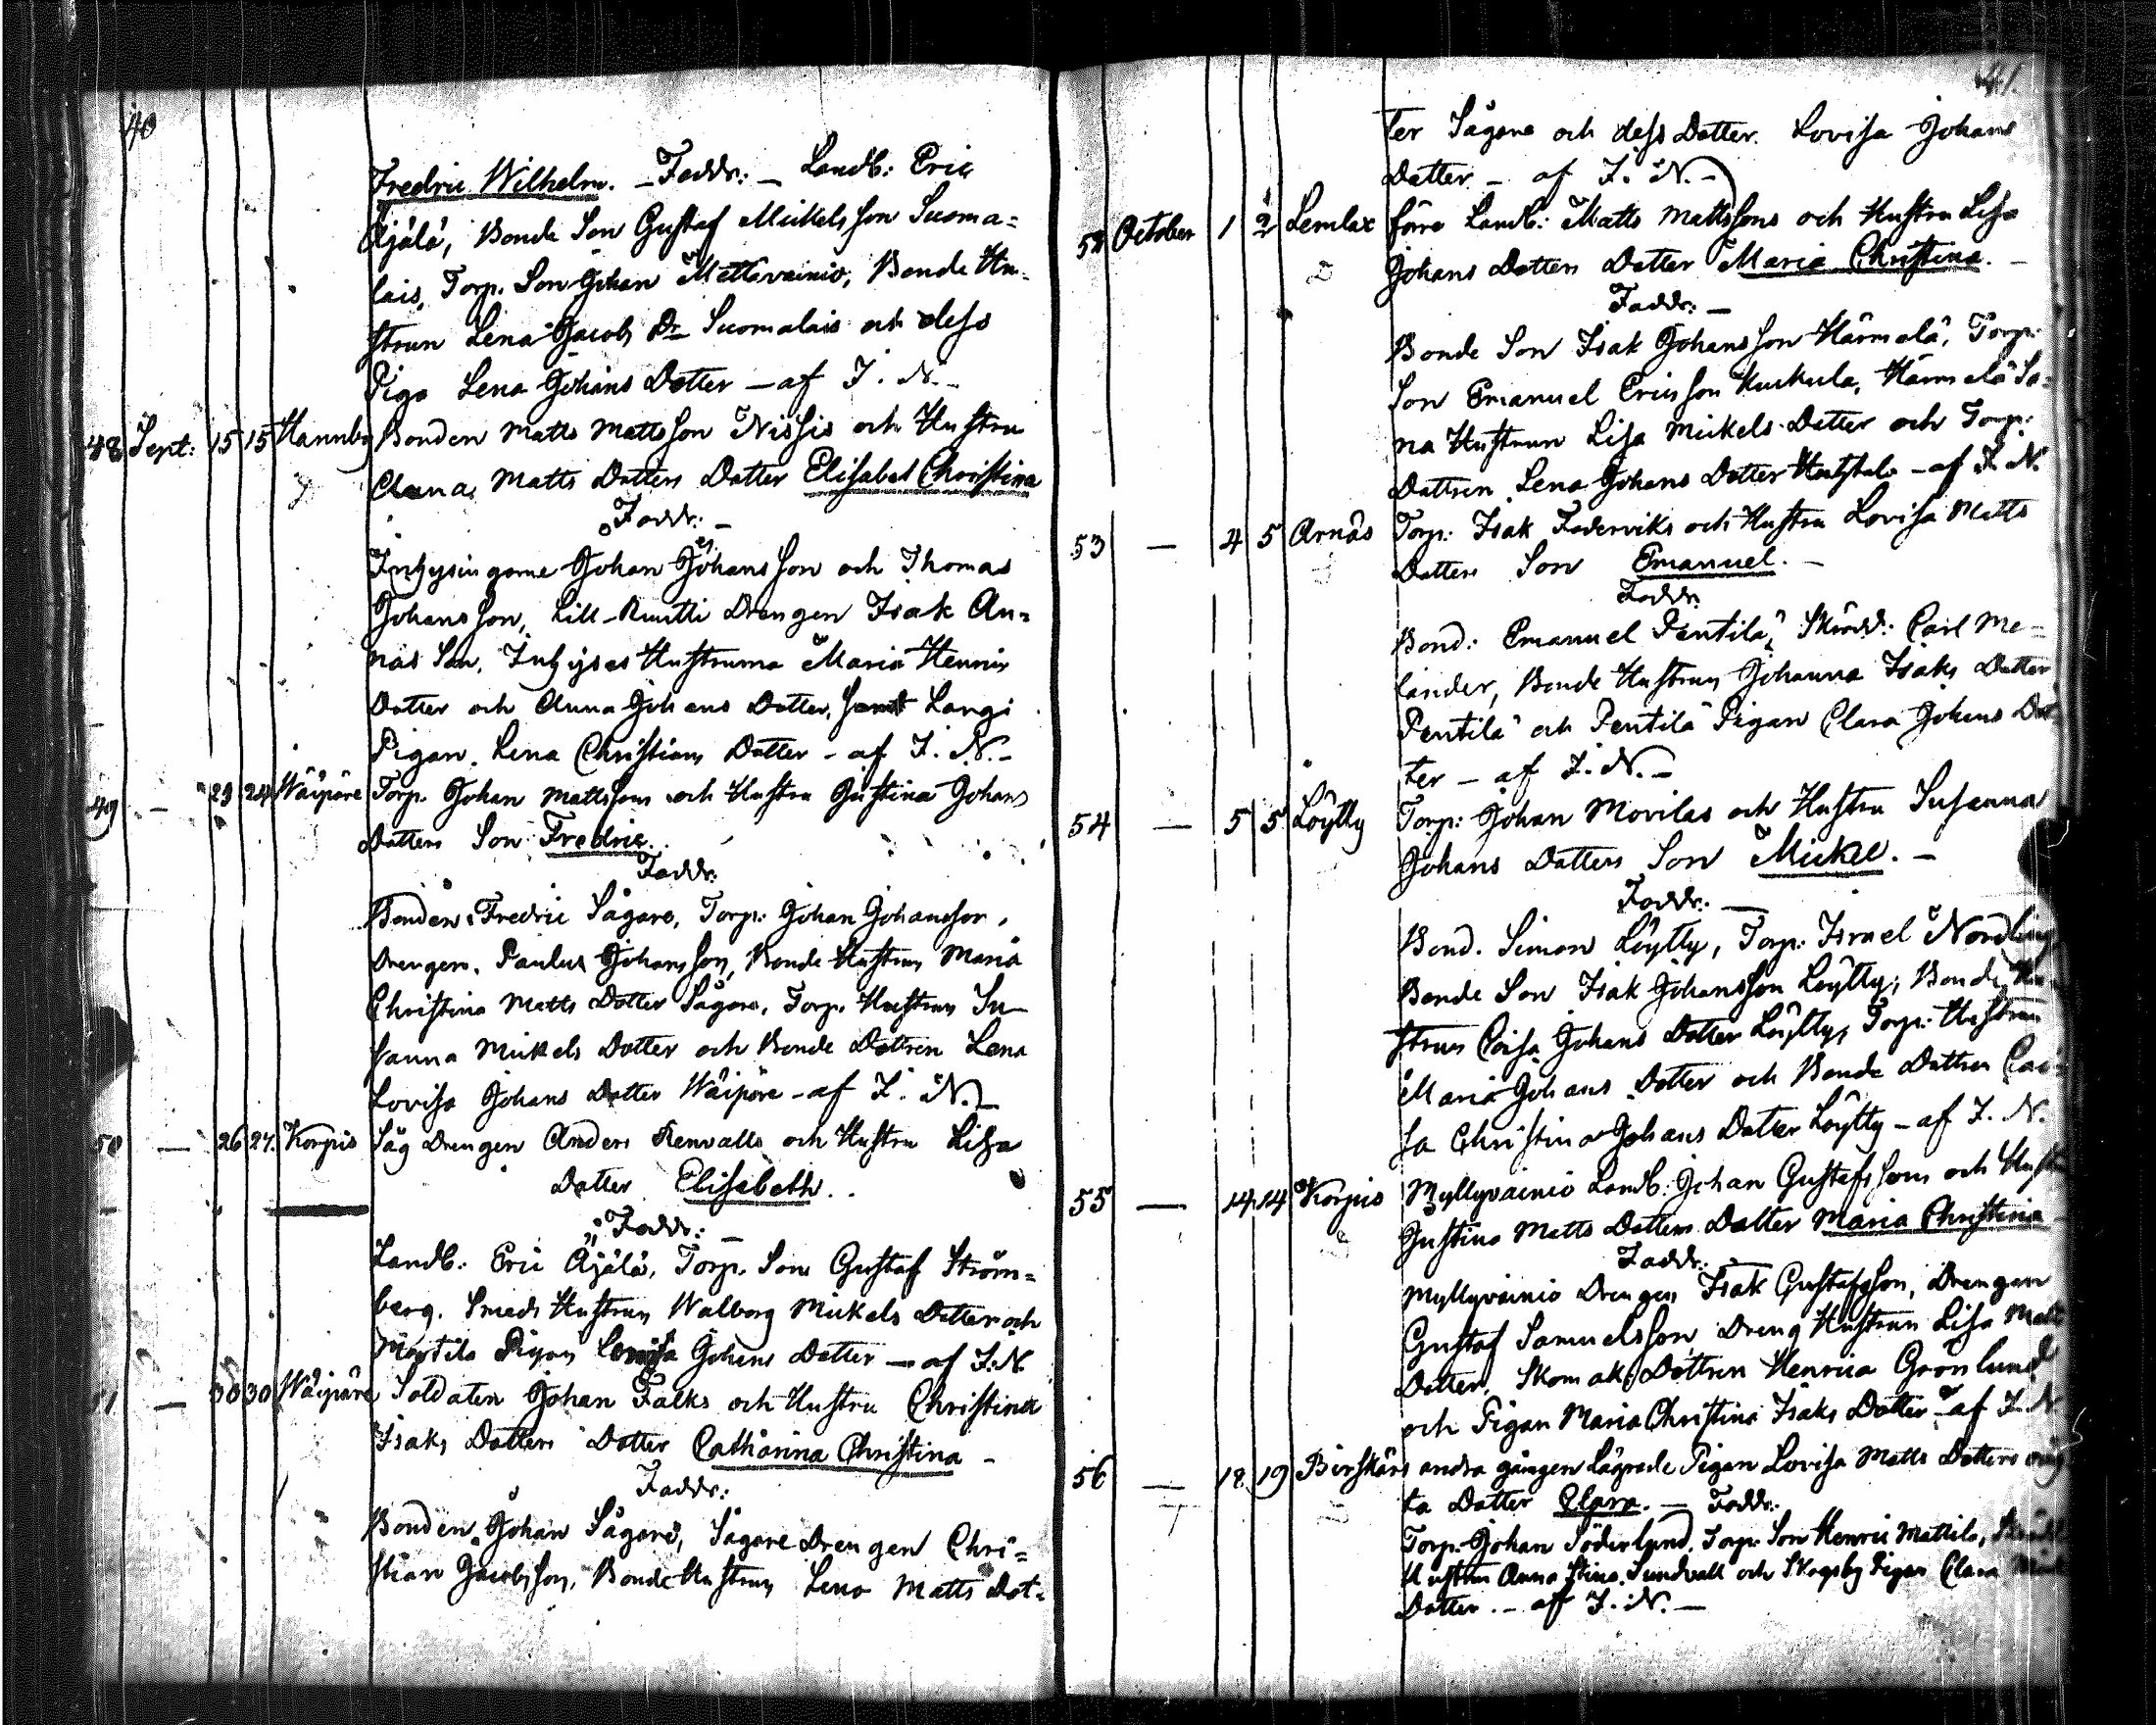 40
Fredric Wilhelm. – Faddr: – Landb: Eric
Äjälä, Bonde Son Gustaf Mickelsson Suoma=
lais, Torp. Son Johan Mettävainio, Bonde Hu-
strun Lena Jacobs Dr Suomalais och dess
Piga Lena Johans Dotter – af J. N. –
48 Sept: 15 15 Hannby Bonden Matts Mattsson Nissis och Hustru
Anna Matts Dotters Dotter Elisabet Christina
Faddr: –
Inhysingarne Johan Johansson och Thomas
Johansson, Lill-Ruutti Drengen Isak An=
nas Son, Inhyses Hustrurna Maria Henrix
Dotter och Anna Johans Dotter, samt Langi
Pigan Lena Christians Dotter – af J. N. –
49 – 23 24 Wäipäre Torp. Johan Mattssons och Hustru Gustina Johans
Dotters Son Fredric.
Faddr:
Bonden Fredric Sågare, Torp: Johan Johansson,
Drengen Paulus Johansson, Bonde Hustrun Maria
Christina Matts Dotter Sågare, Torp. Hustrun Su-
sanna Mickels Dotter och Bonde Dottren Lena
Lovisa Johans Dotter Wäipäre – af J. N. –
50 – 26 27. Korpis Såg Drengen Anders Renvalls och Hustru Lisa
Dotter Elisabeth.
Faddr: –
Landb: Eric Äjälä, Torp. Son Gustaf Ström=
berg, Smeds Hustrun Walborg Mickels Dotter och
Mårtila Pigan Lovisa Johans Dotter – af J. N.
51 – 30 30 Wäipäre Soldaten Johan Falks och Hustru Christina
Isaks Dotters Dotter Catharina Christina –
Faddr:
Bonden Johan Sågare, Sågare Drengen Chri=
stian Jacobsson, Bonde Hustrun Lena Matts Dot=
41.
ter Sågare och dess Dotter Lovisa Johans
Dotter – af J. N. –
52 October 1 2 Lemlax förre Landb: Matts Mattssons och Hustru Lisa
Johans Dotters Dotter Maria Christina. –
Faddr: –
Bonde Son Isak Johansson Härmälä, Torp:
Son Emanuel Ericsson Kuckula, Härmälä So=
na Hustrun Lisa Mickels Dotter och Torp:
Dottren Lena Johans Dotter – af J. N.
53 – 4 5 Arnäs Torp: Isak Faderviks och Hustru Lovisa Matts
Dotters Son Emanuel. –
Faddr:
Bond: Emanuel Pentilä, Skrädd: Carl Me=
lander, Bonde Hustrun Johanna Isaks Dotter
Pentilä och Pentilä Pigan Clara Johans Dot
ter – af J. N. –
54 – 5 5 Löytty Torp: Johan Movilas och Hustru Susanna
Johans Dotters Son Mickel. –
Faddr: –
Bond. Simon Löytty, Torp: Israel Nordling
Bonde Son Isak Johansson Löytty, Bonde Hu
strun Caisa Johans Dotter Löytty, Torp: Hustrun
Maria Johans Dotter och Bonde Dottren Cai
sa Christina Johans Dotter Löytty – af J. N.
55 – 14 14 Korpis Myllyvainio Landb: Johan Gustafssons och Hust
Justina Matts Dotters Dotter Maria Christina
Faddr: –
Myllyvainio Drengen Isak Gustafsson, Drengen
Gustaf Samuelsson, Dreng Hustrun Lisa Matts
Dotter, Skomak: Dottren Henrica Grönlund
och Pigan Maria Christina Isaks Dotter – af J. N
56 – 18 19 Birskärs andra gången lägrade Pigan Lovisa Matts Dotters oäg
ta Dotter Clara. – Faddr:
Torp: Johan Söderlund, Torp: Son Henric Mattila,
Hustrun Anna Stina Sundvall och Skogsby Pigan Clara
Dotter. – af J. N. –